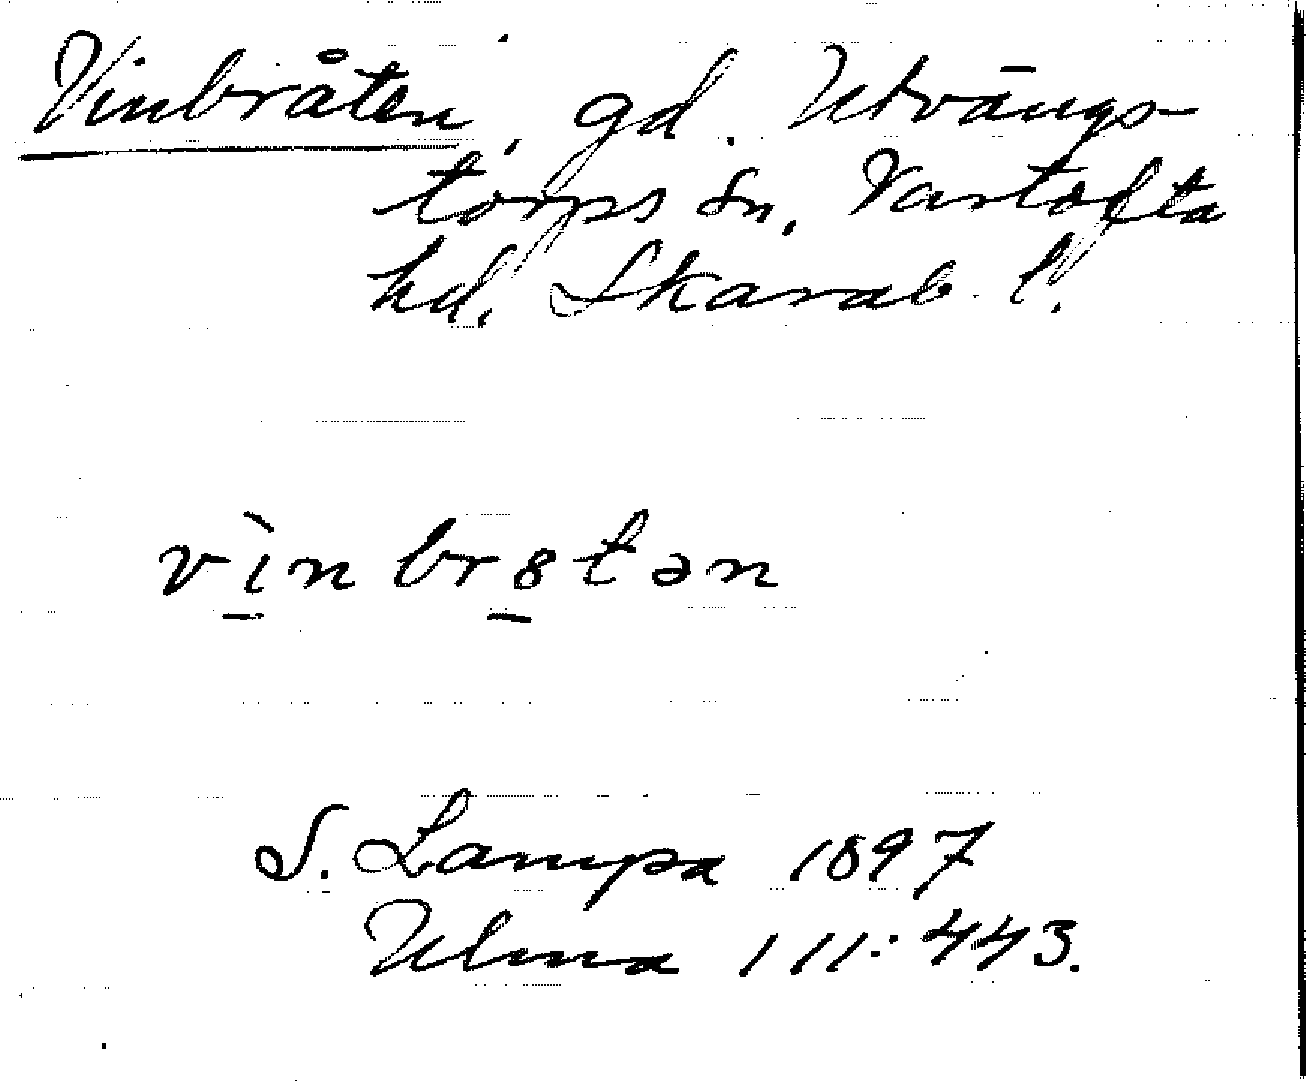 Vinbråten, gd. Utvängs-
torps sn, Vartofta
hd, Skarab. l.
vìnbr8tən
S. Lampa 1897
Ulma 111:443.